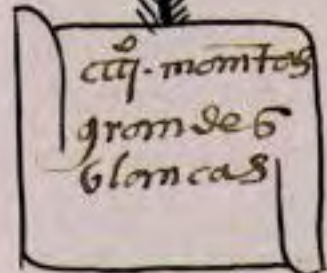 ciiijº. mantas
grandes
blancas